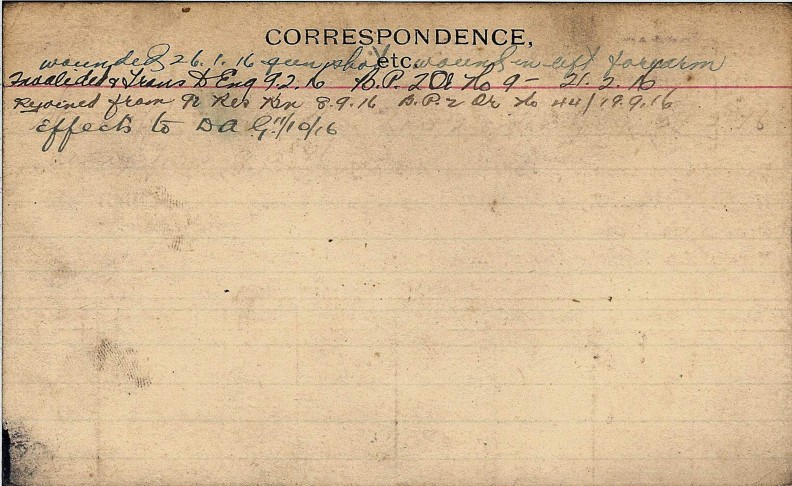 CORRESPONDENCE,
etc.
wounded 26.1.16 gun shot wound in left forearm
Invalided & Trans to Eng 9.2.16 B.P. 2 Or No 9 - 21.2.16
Rejoined from 9 Res Bn 8.9.16 B.P. 2 Or No 44/19.9.16
Effects to D A G 11/10/16